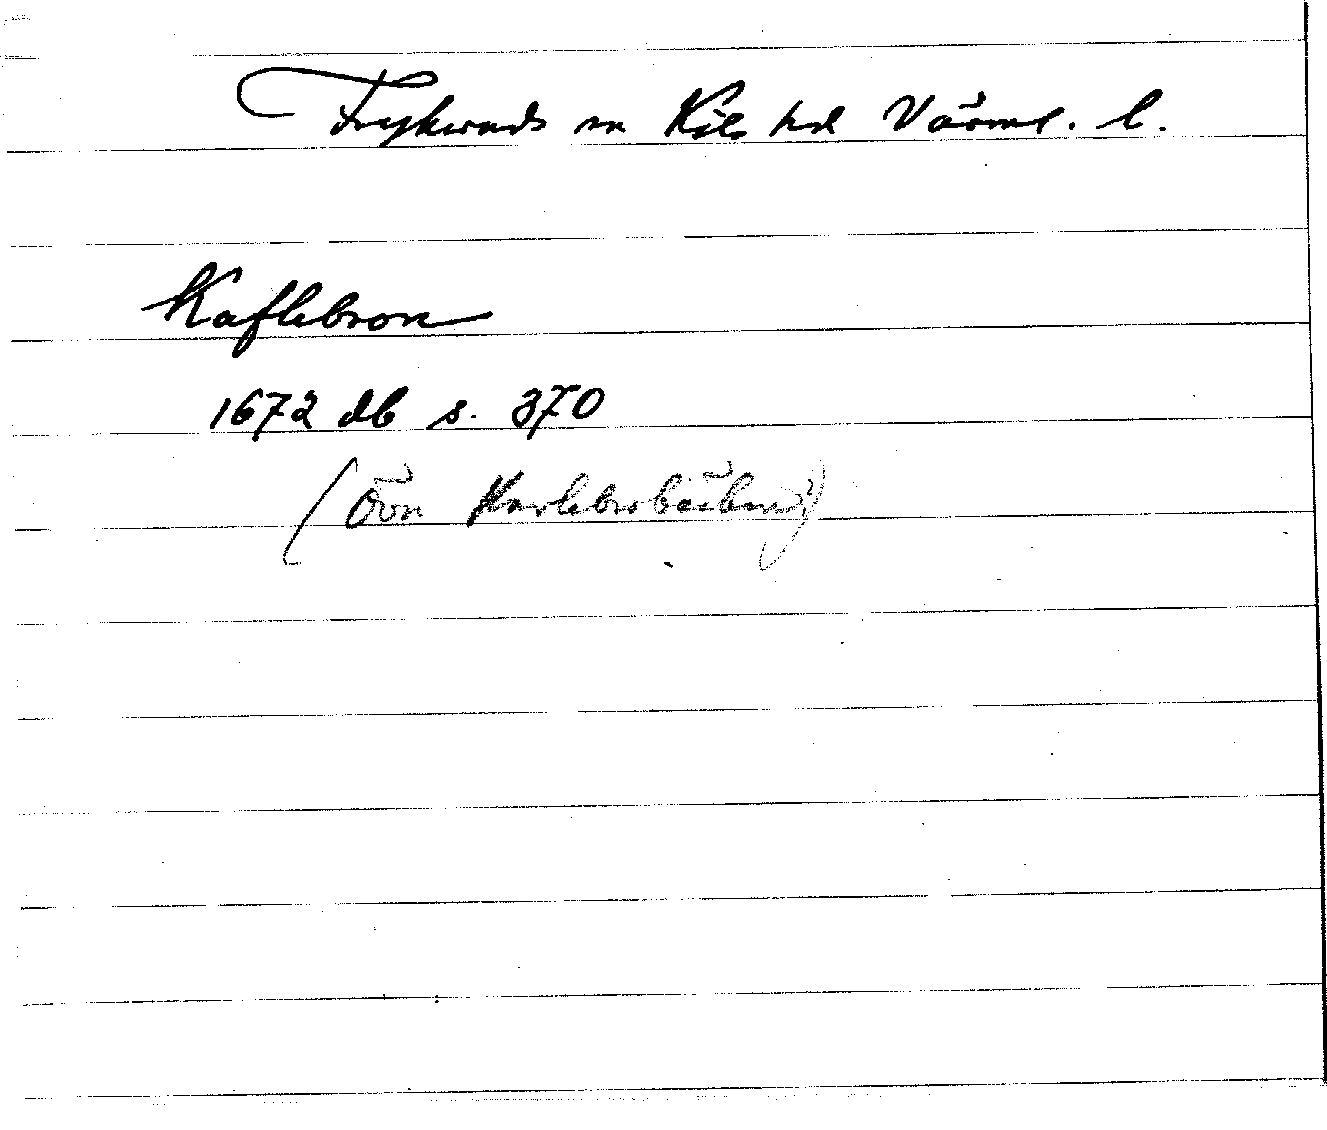 Frykeruds sn Kils hd Värml. l.
Kaflebron
1672 db s. 370
(över